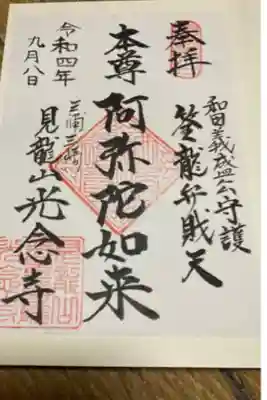 奉拝
和田義盛公守護
筌龍弁財天
本尊
阿弥陀如来
三浦三崎
見龍山光念寺
令和四年
九月八日